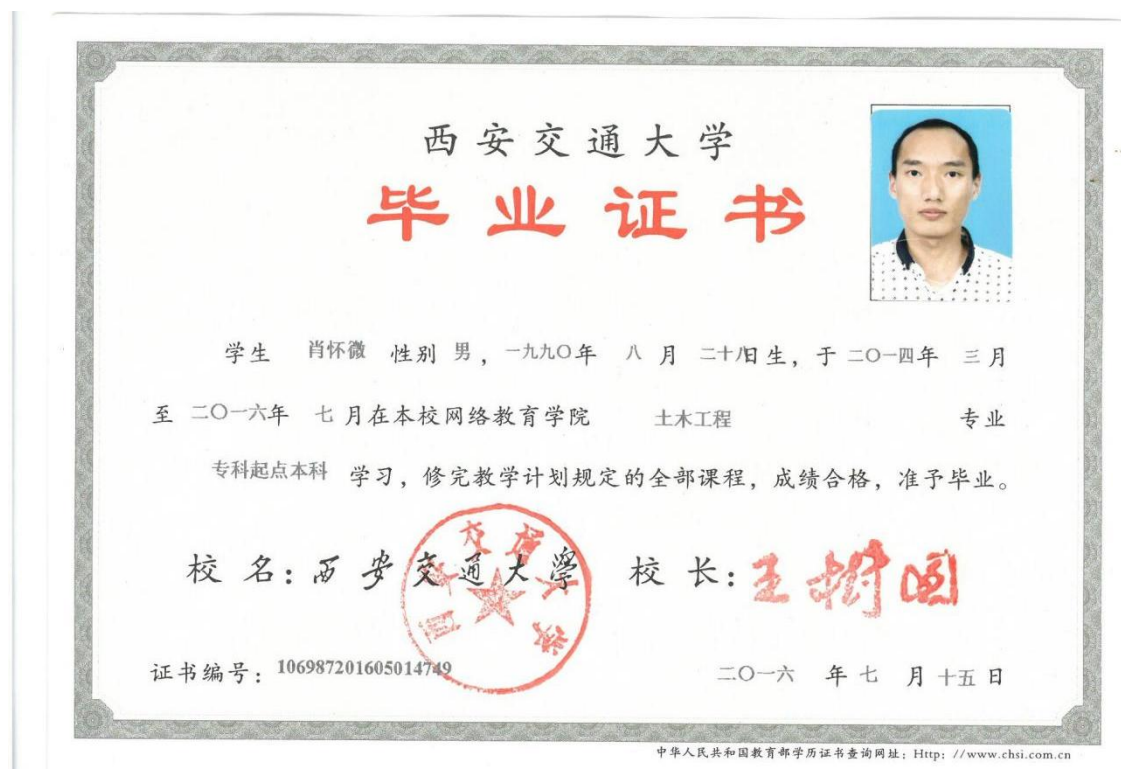 西安交通大学
毕业证书
学生 肖怀微 性别 男，一九九〇年 八 月 二十八日生，于 二〇一四年 三月
至 二〇一六年 七 月在本校网络教育学院 土木工程 专业
专科起点本科 学习，修完教学计划规定的全部课程，成绩合格，准予毕业。
校 名：西安交通大學 校 长：王树国
西安交通大学
证书编号：106987201605014749 二〇一六 年 七 月 十五 日
中华人民共和国教育部学历证书查询网址：Http：//www.chsi.com.cn